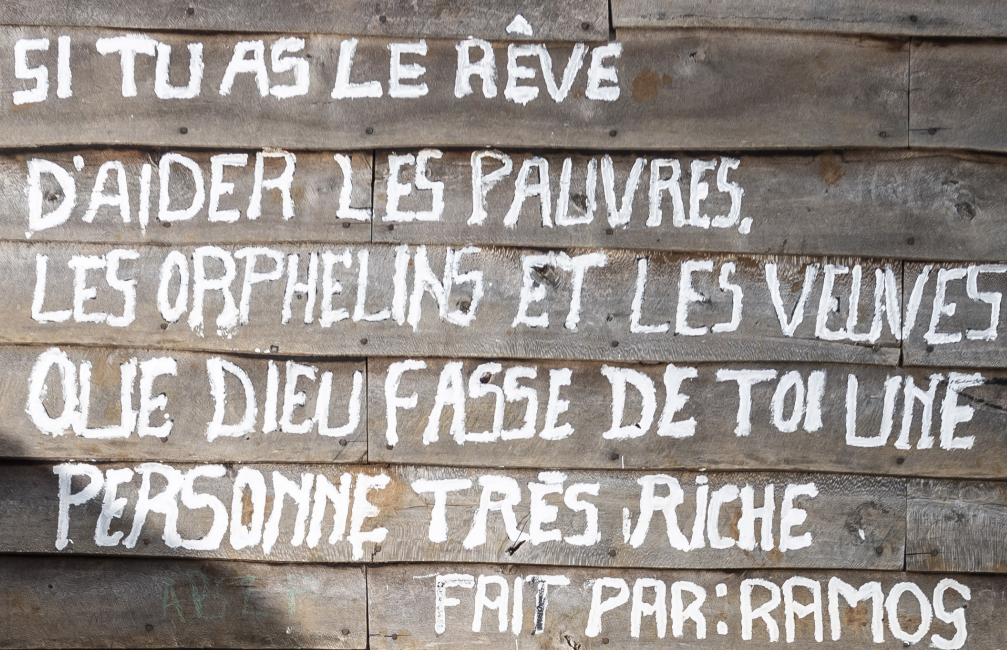 SI TU AS LE RÊVE
D'AIDER LES PAUVRES,
LES ORPHELINS ET LES VEUVES
QUE DIEU FASSE DE TOI UNE
PERSONNE TRÈS RICHE
FAIT PAR: RAMOS